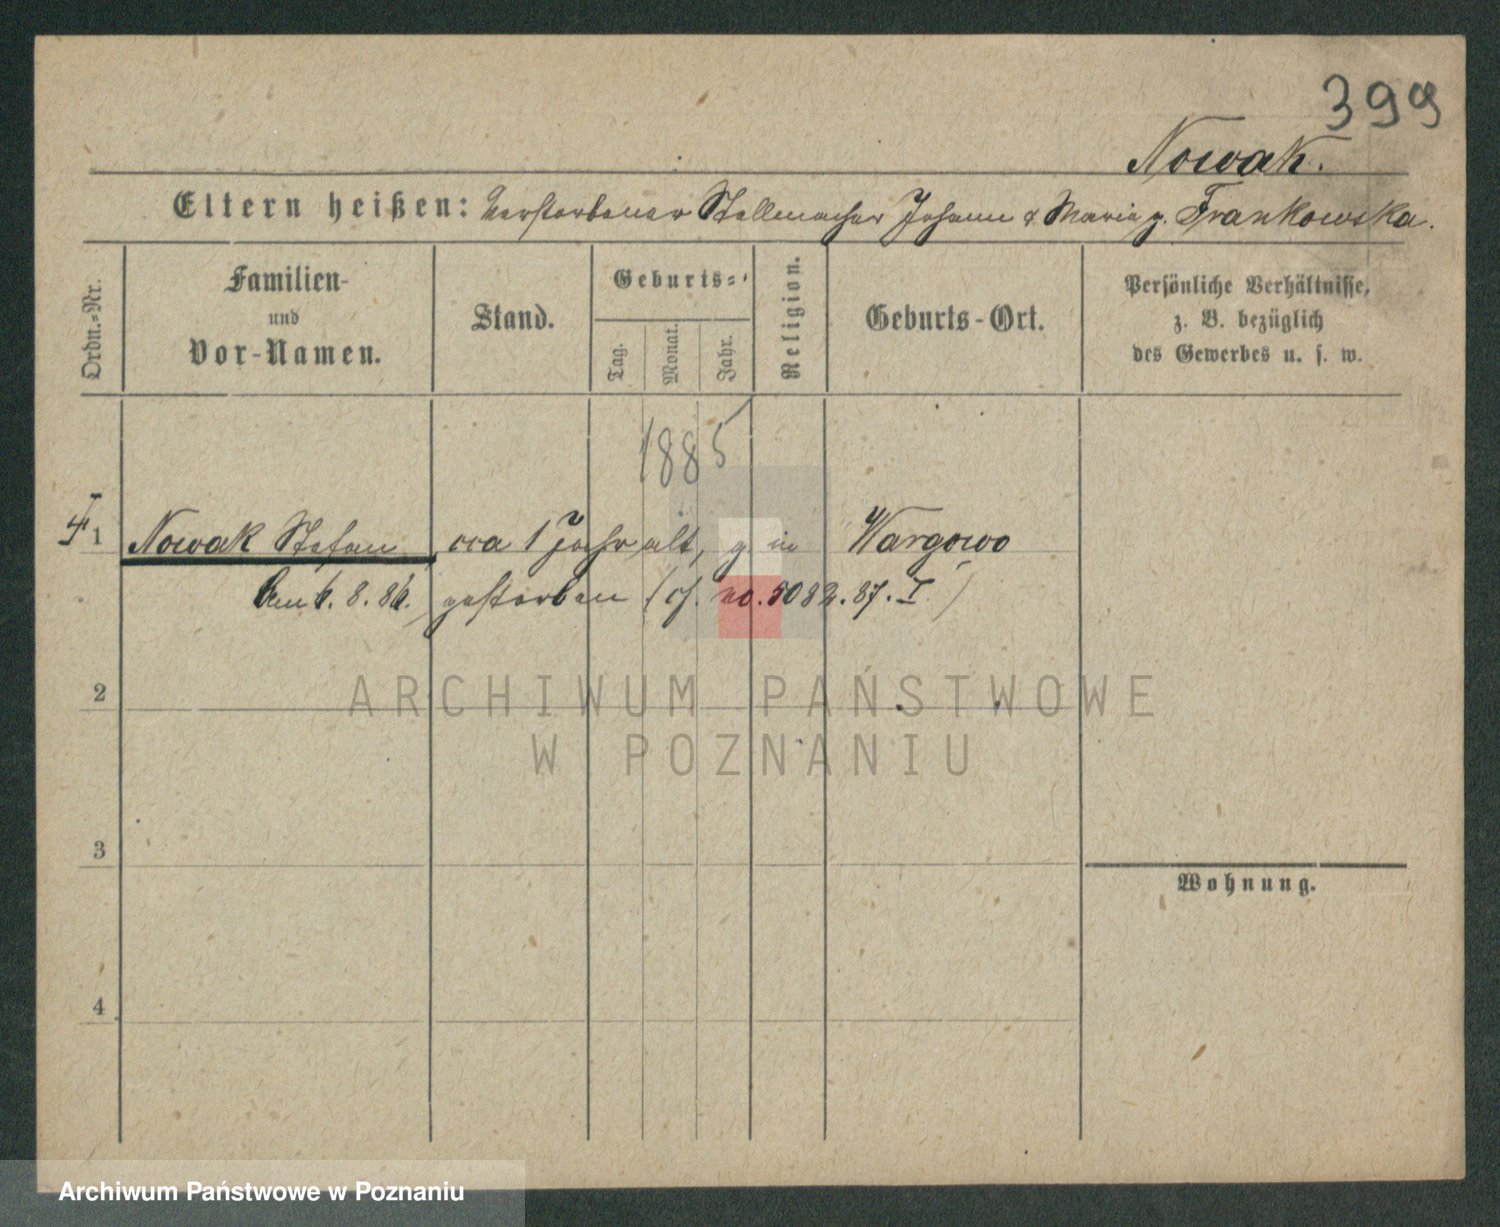 399
Nowak.
Eltern heißen: Verstorbener Stellmacher Johann & Maria g. Frankowska.
Ordn.-Nr.
Familien-
und
Vor-Namen.
Stand.
Geburts-
Tag.
Monat.
Jahr.
Religion.
Geburts-Ort.
Persönliche Verhältnisse,
z. B. bezüglich
des Gewerbes u. s. w.
1885
1 Nowak Stefan cca 1 Jahr alt, g. in Wargowo
Am 6. 8. 86. gestorben (cf. no. 5082. 87. I.)
2
ARCHIWUM PAŃSTWOWE
W POZNANIU
3
Wohnung.
4
Archiwum Państwowe w Poznaniu